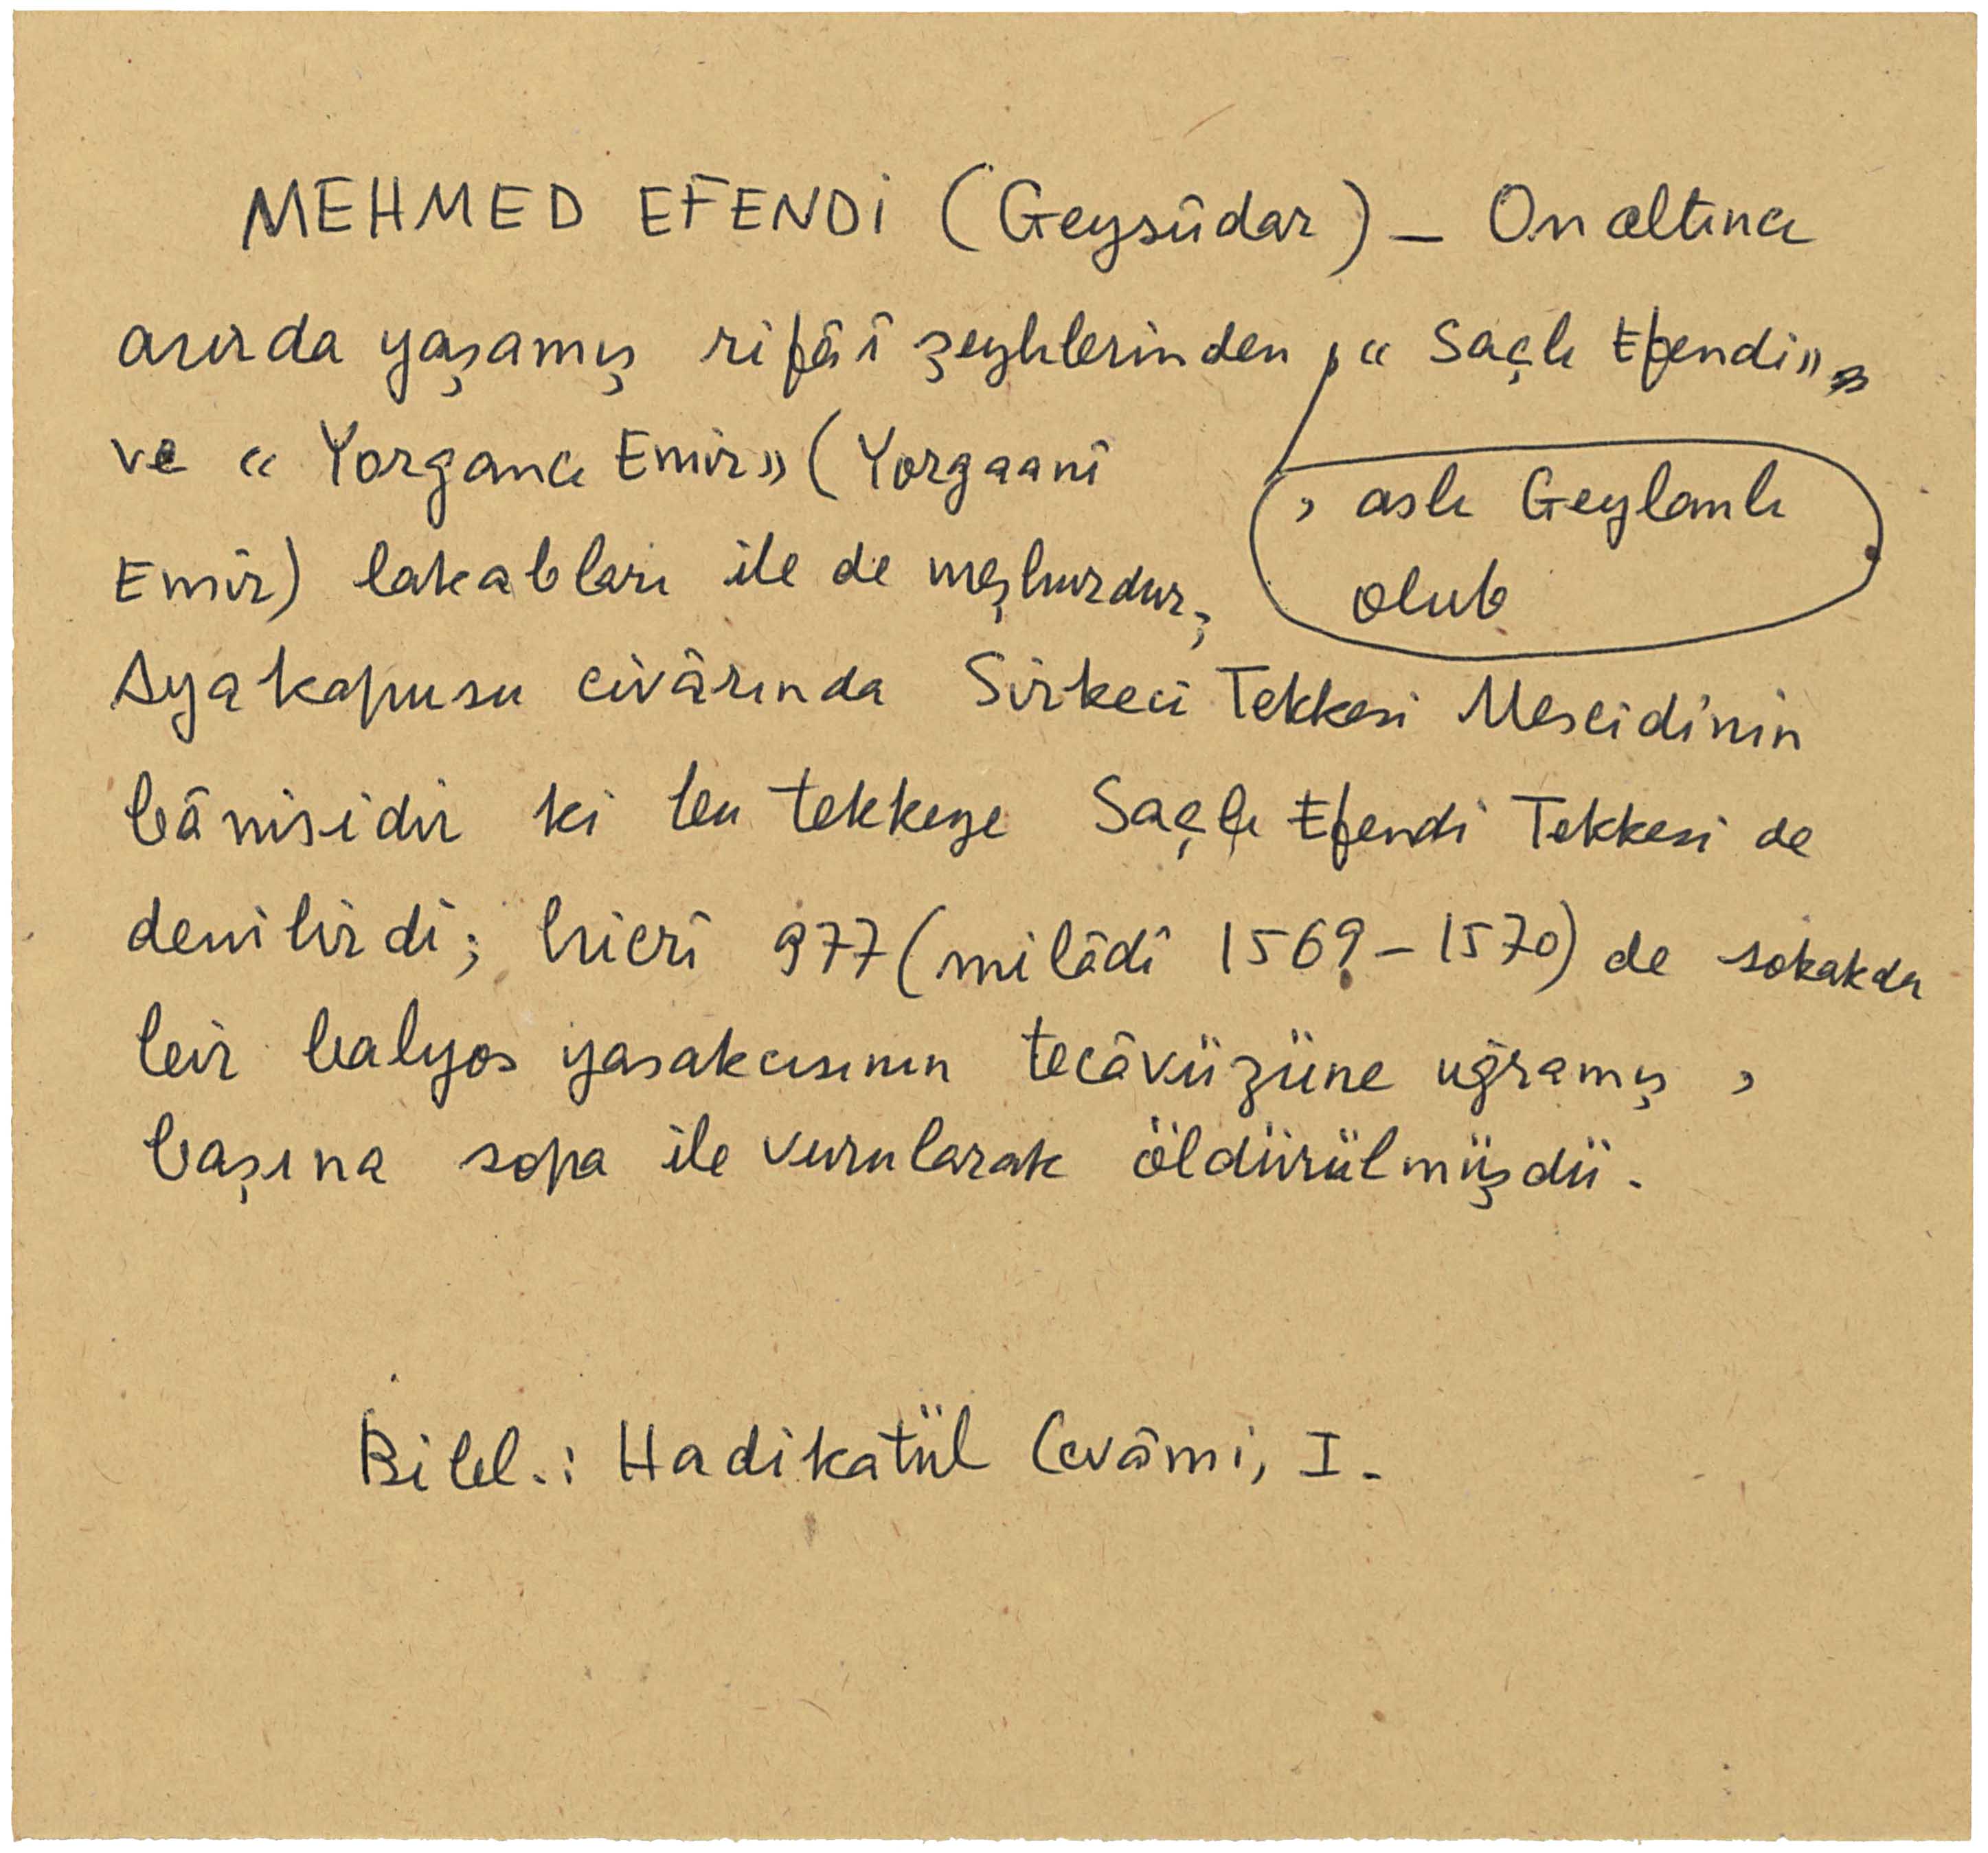 MEHMED EFENDİ (Geysûdar) — On altıncı
asırda yaşamış rifâî şeyhlerinden, « Saçlı Efendi»
ve « Yorgancı Emir» ( Yorgaanî
, aslı Geylanlı
olub
Emîr) lakabları ile de meşhurdur;
Ayakapusu civârında Sirkeci Tekkesi Mescidinin
bânisidir ki bu tekkeye Saçlı Efendi Tekkesi de
denilirdi; hicrî 977 (milâdî 1569-1570) de sokakda
bir balyos yasakcısının tecâvüzüne uğramış ,
başına sopa ile vurularak öldürülmüşdü.
Bibl.: Hadikatül Cevâmi, I.